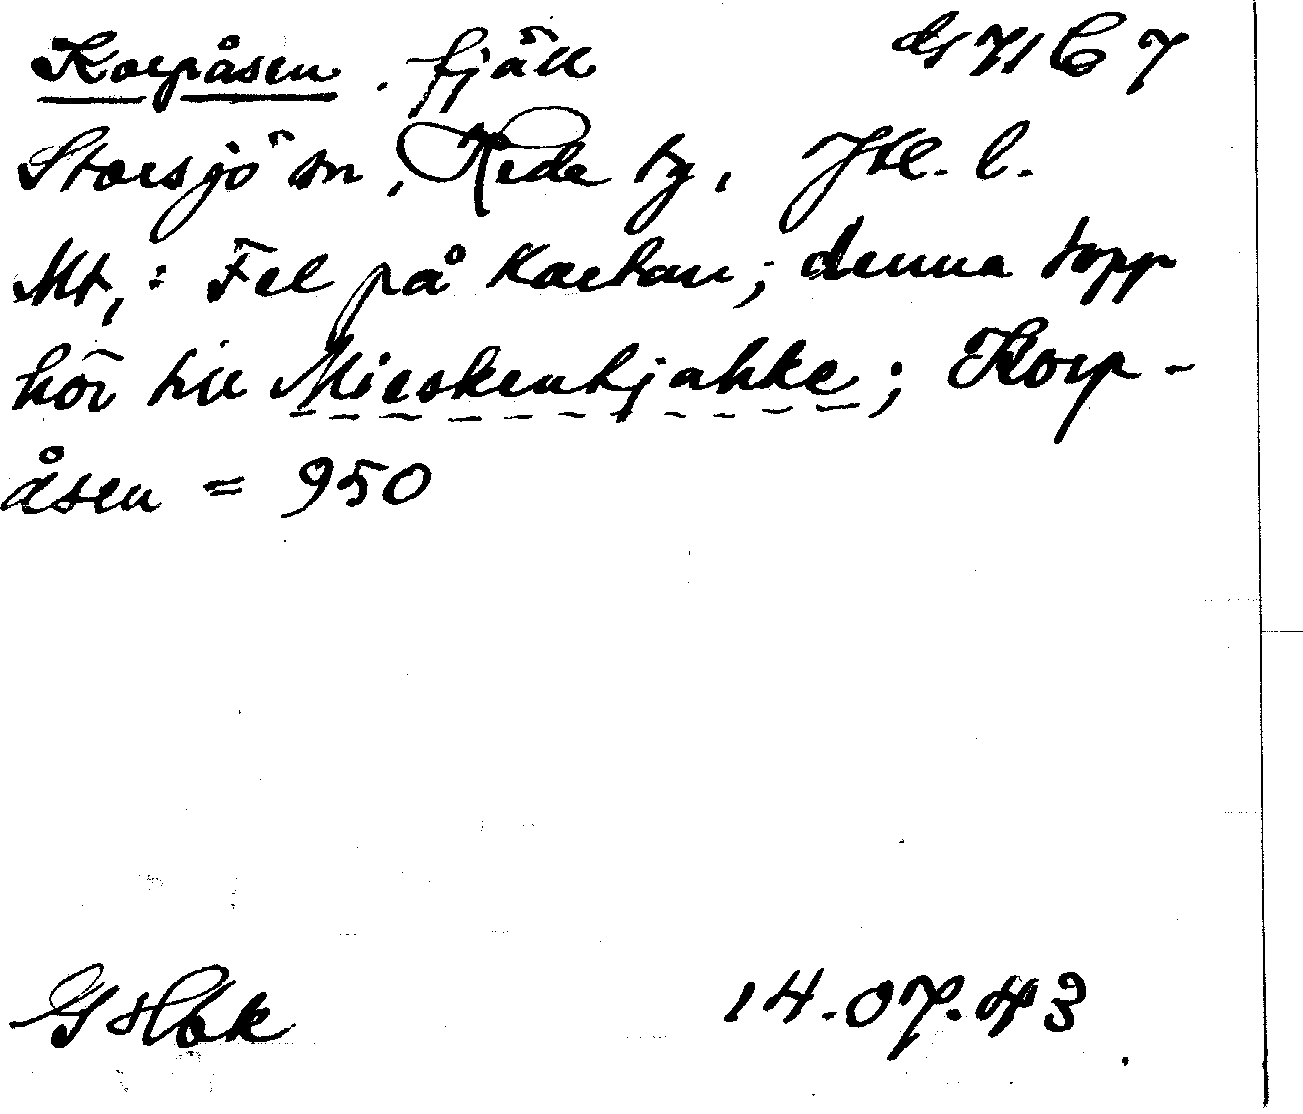 Korpåsen, fjäll d 71 C 7
Storsjö sn, Heda tg, Jtl. l.
Mt,: Fel på kartan; denna topp
hör till Mieskentjahke; Korp-
åsen = 950
14.07.43